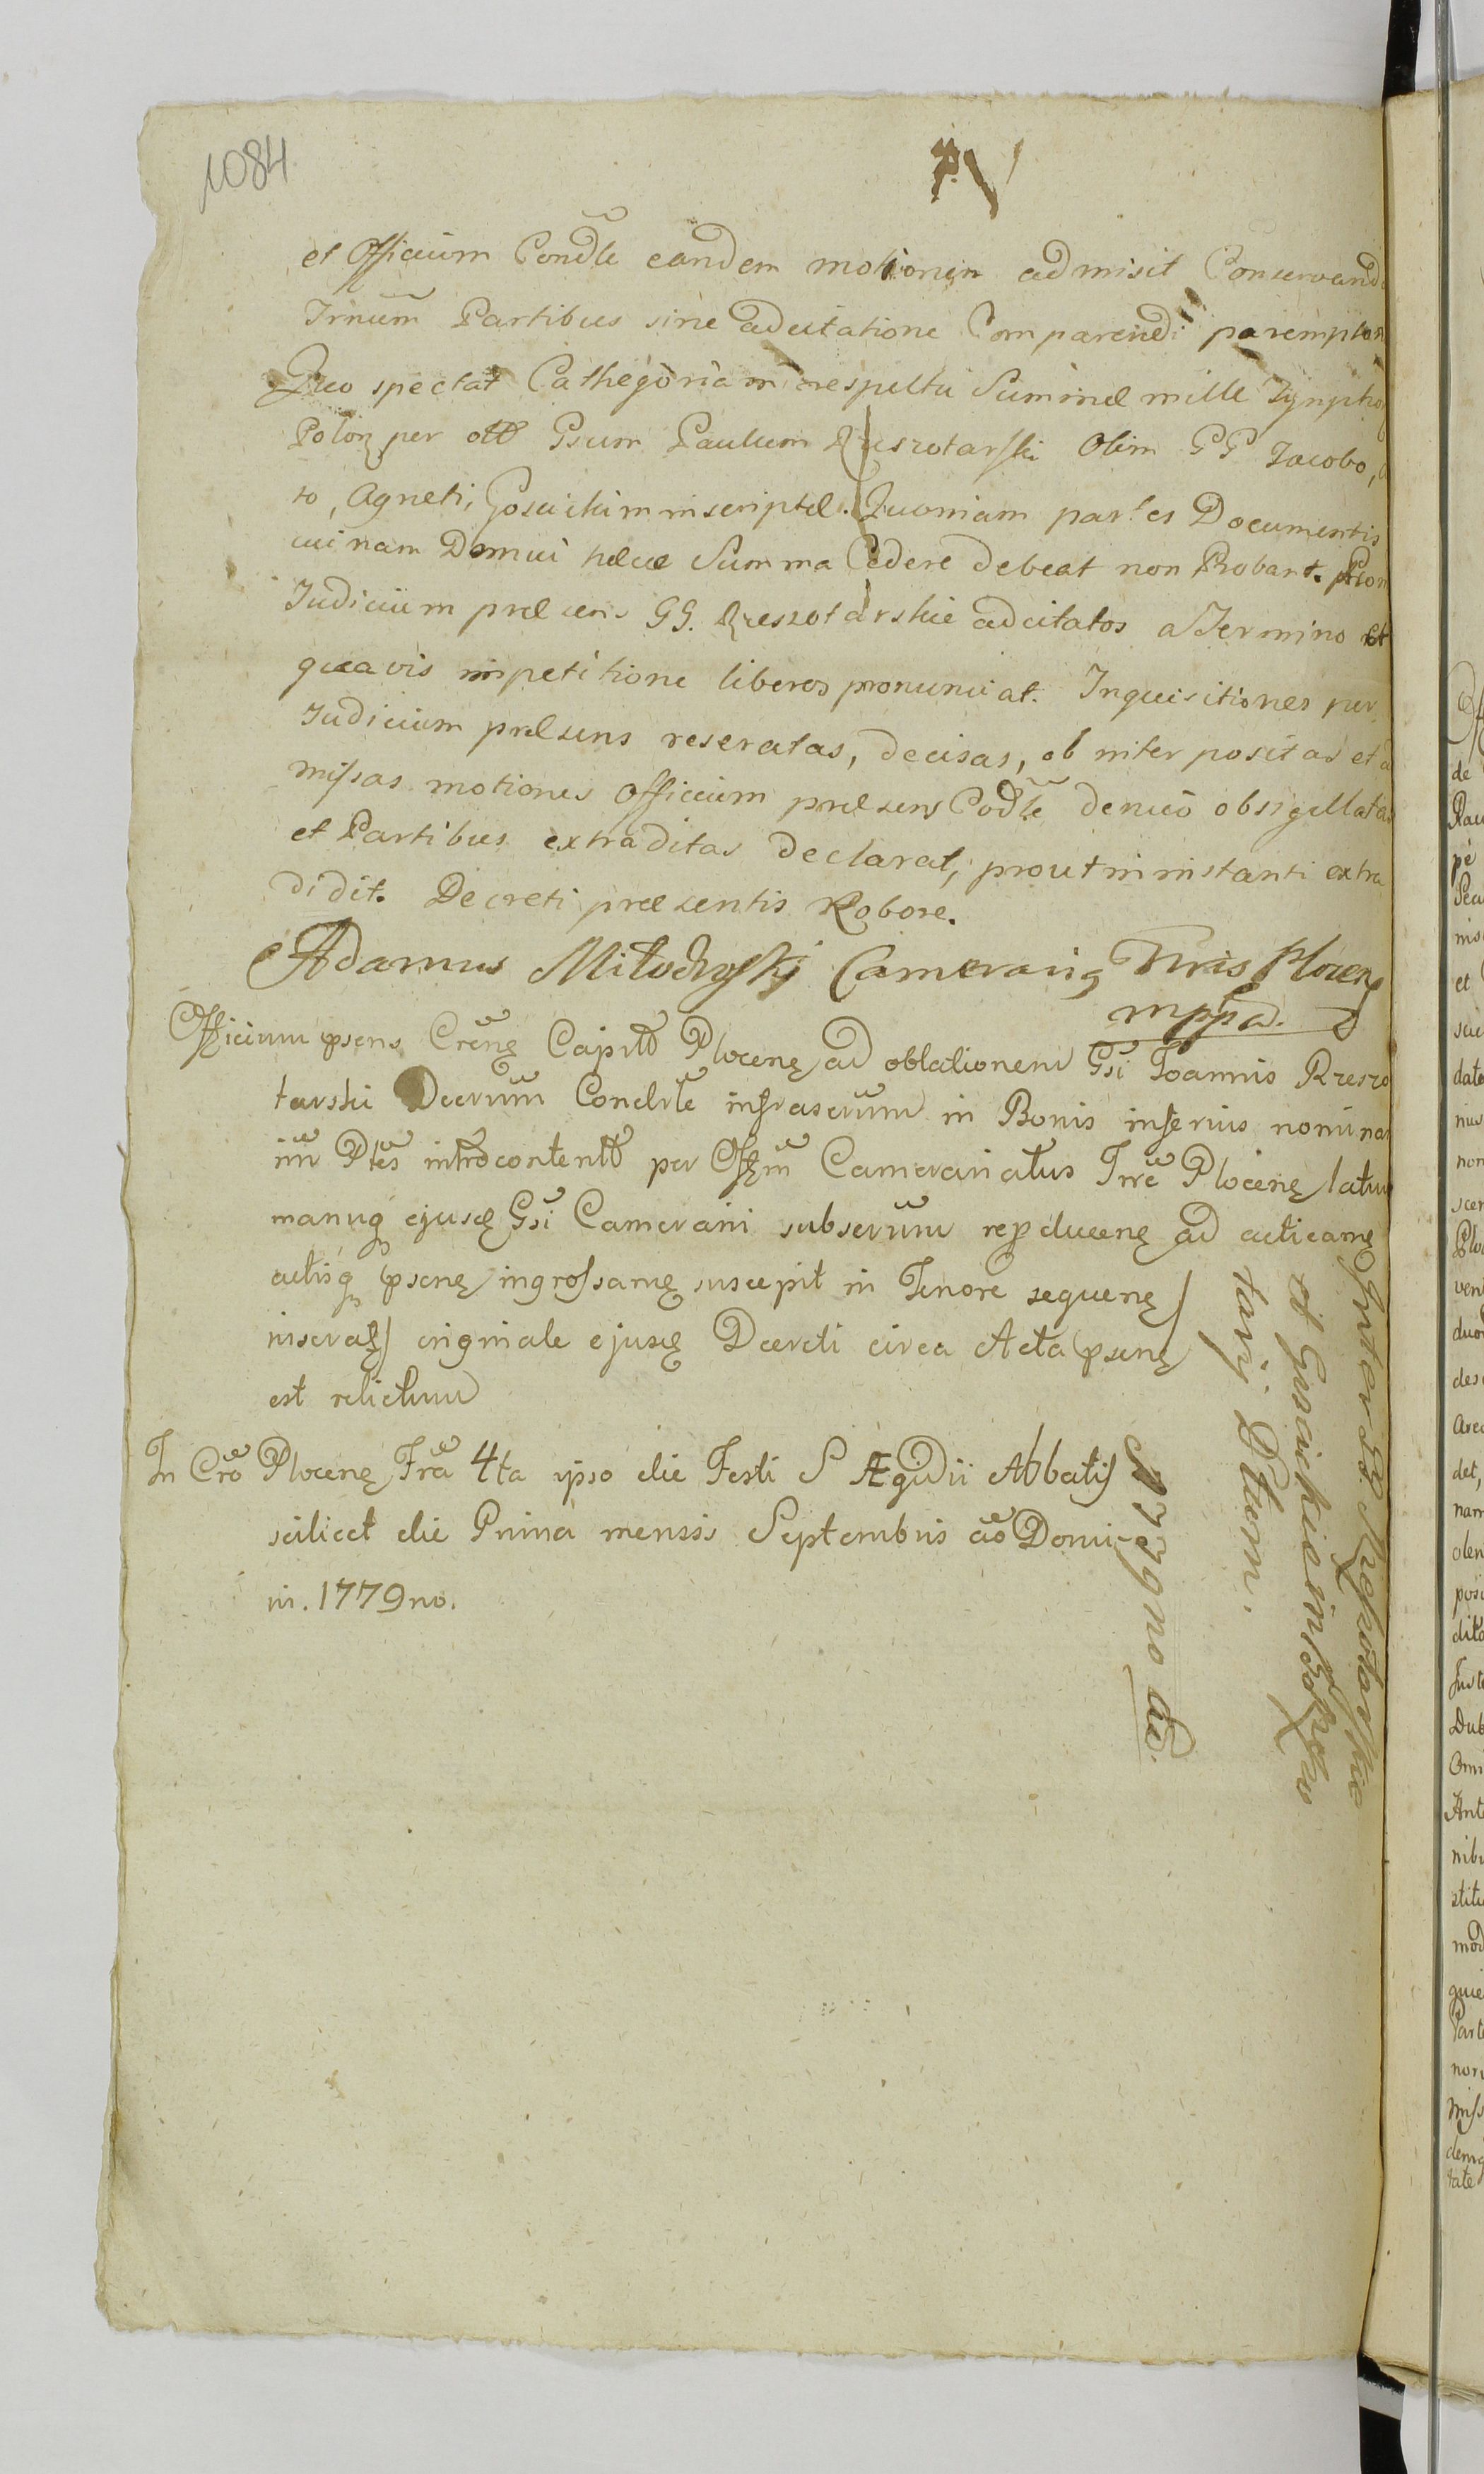 1084
et Officium Condle eandem motionem admisit Conservand
Trnum Partibus sine adcitatione Comparendi peremptor
Quo spectat Cathegoriam respectu Summæ mille Tynpho
Polon per olt Gsum Paulum Rzeszotarski Olim GG Jacobo,
to, Agneti, Goscickim inscriptæ. Quoniam partes Documentis
cuinam Domui hæcce Summa Cedere debeat non Probant.
Judicium præsens GG. Rzeszotarskie adcitatos a Termino et
quavis impetitione liberos pronunciat. Inquisitiones per
Judicium præsens reseratas, decisas, ob interpositas et
missas motiones Officium præsens Codle denuo obsigillatas
et Partibus extraditas declarat, prout in instanti extra
didit. Decreti præsentis Robore.
Adamus Miłodroski Camerarig Trris Plocen
mppa.
Officium psens Crene Capitt Plocene ad oblationem Gsi Joannis Rzeszo
tarski Decrum Condrle infrascrum in Bonis inferius nomina
im Ptes introcontentt per Offm Camerariatus Trre Plocene latum
manuq ejusde Gsi Camerarii subscrum rep ducene ad acticame
actisq psene ingrossame suscepit in Tenore sequene
inserat originale ejusde Decreti circa Acta psene
est relictum
In Cro Plocene Fra 4ta ipso die Festi S Ægidii Abbatis
scilicet die Prima mensis Septembris ao Domi-
ni. 1779no.
Inter GG. Rzeszotarskie
et Goscickie in Bożewo
tarij Ptem.
1779no